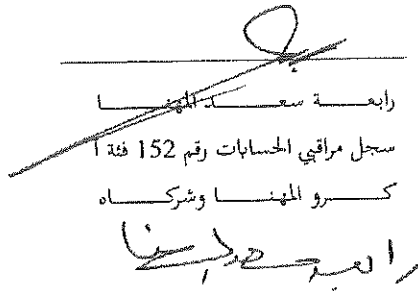 رابعة سعد المهنا
سجل مراقبي الحسابات رقم 152 فئة أ
كرو المهنا وشركاه
رابعة سعد المهنا